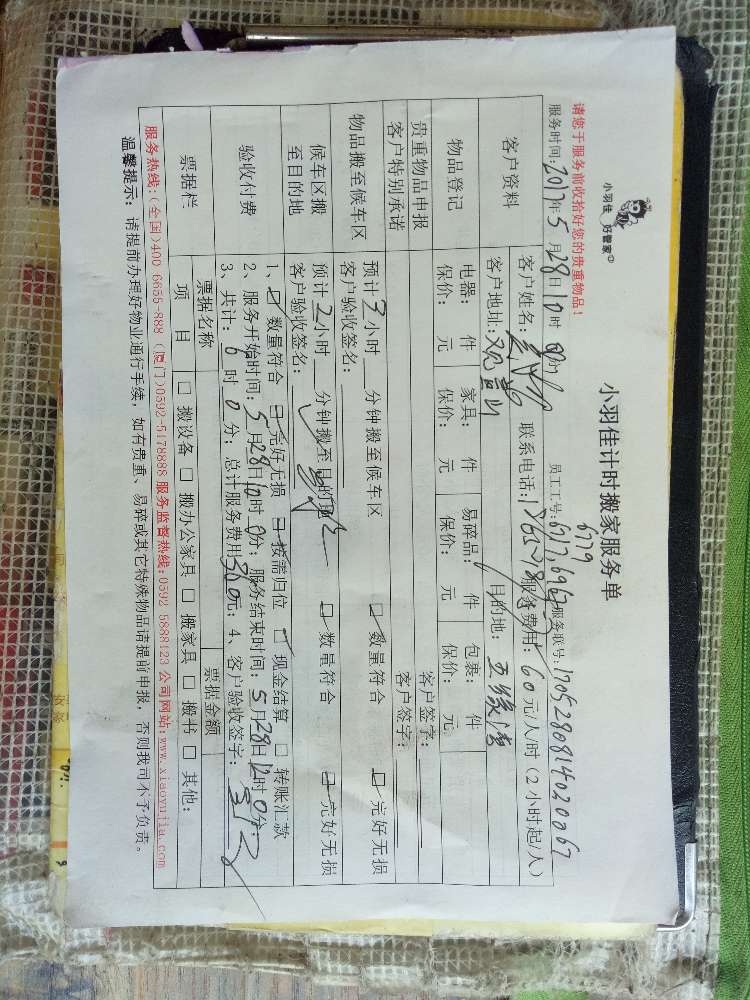 小羽佳 好管家
小羽佳计时搬家服务单
请您于服务前收拾好您的贵重物品！
6779
员工工号：6717、6963 服务联号：1705280814020067
服务时间：2017年5月28日10时
客户资料
客户姓名： 联系电话： 服务费用：60元/人/时（2小时起/人）
客户地址：观音山 目的地：五缘湾
物品登记
电器： 件 家具： 件 易碎品： 件 包裹： 件
保价： 元 保价： 元 保价： 元 保价： 元
贵重物品申报 客户签字：
客户特别承诺 客户签字：
物品搬至候车区
预计3小时 分钟搬至候车区 数量符合 完好无损
客户验收签名：
候车区搬至目的地
预计2小时 分钟搬至目的地 数量符合 完好无损
客户验收签名：
验收付费
1、 数量符合 完好无损 按需归位 现金结算 转账汇款
2、服务开始时间：5月28日10时0分；服务结束时间：5月28日12时0分；
3、共计：6时0分；总计服务费用：360元；4、客户验收签字：
票据栏
票据名称 票据金额
项 目 搬设备 搬办公家具 搬家具 搬书 其他：
服务热线：(全国)400 6655-888 (厦门)0592-5178888 服务监督热线：0592 5888123 公司网站：www.xiaoyujia.com
温馨提示： 请提前办理好物业通行手续，如有贵重、易碎或其它特殊物品请提前申报，否则我司不予负责。